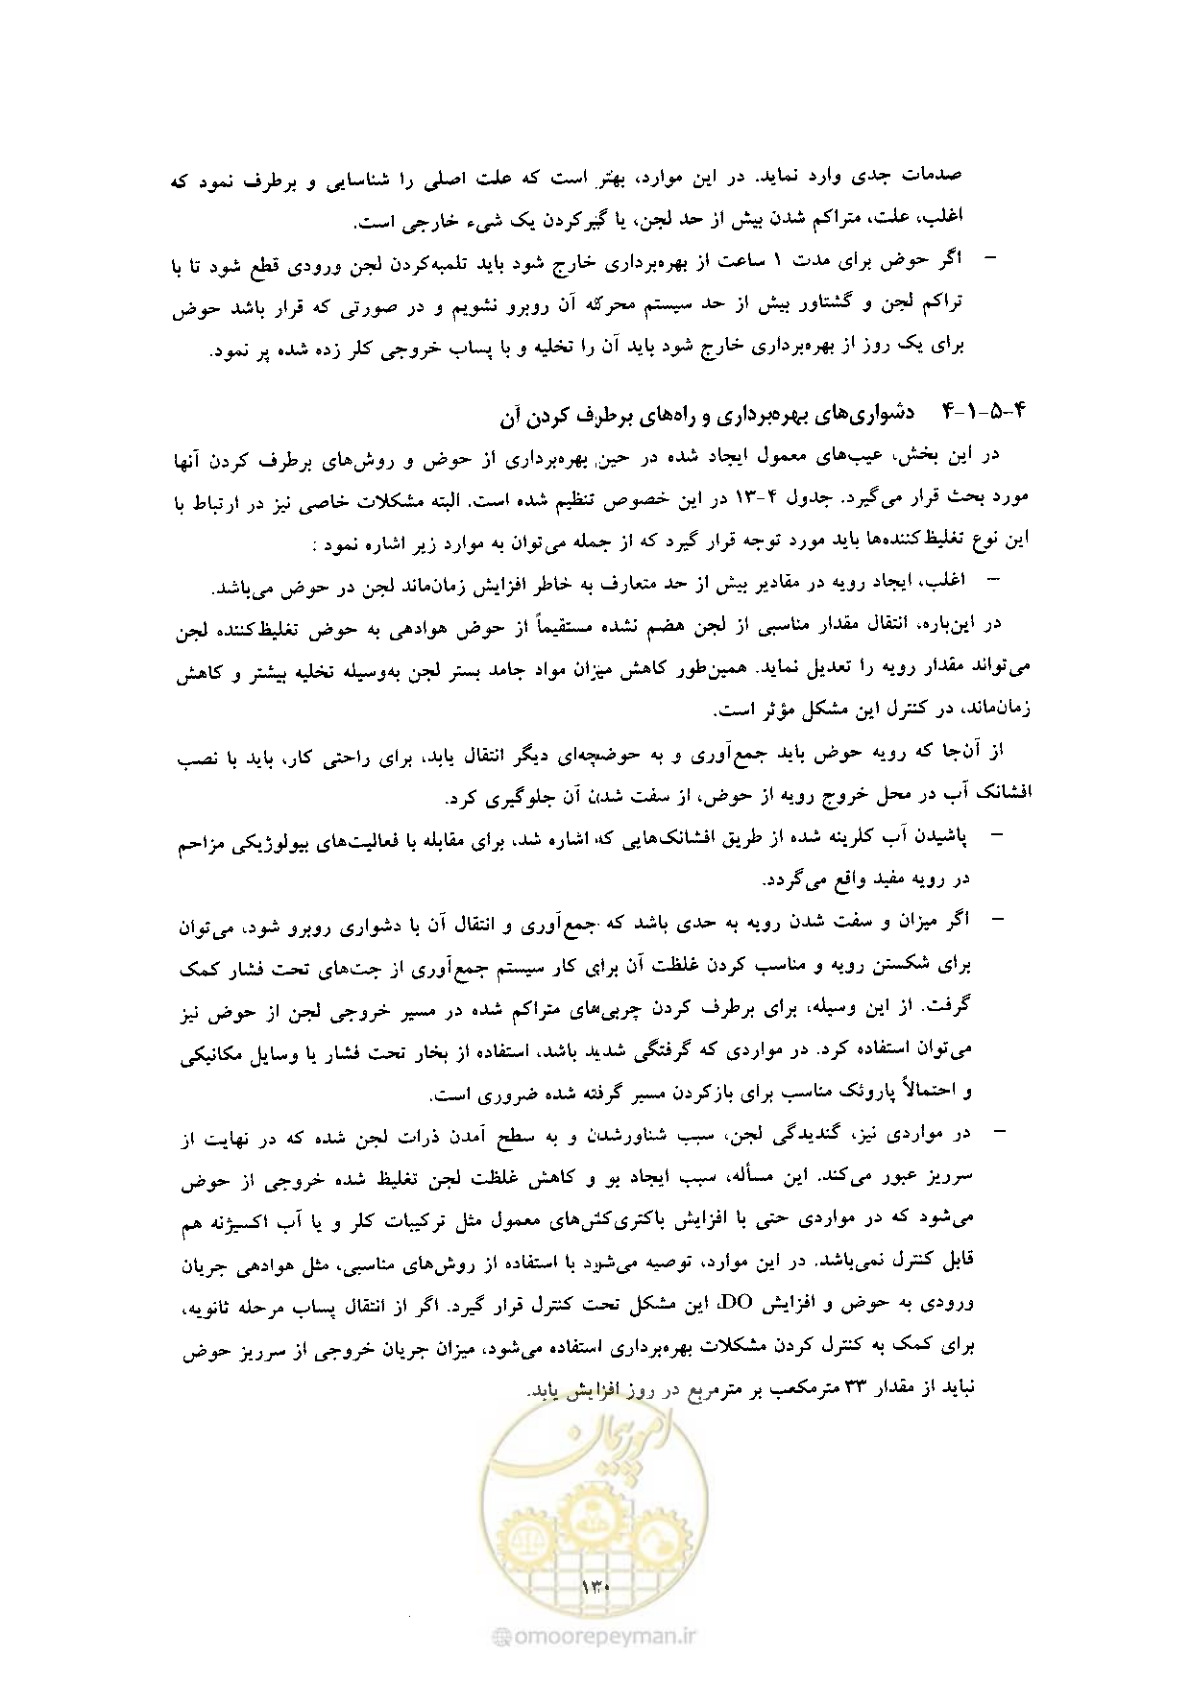 صدمات جدی وارد نماید. در این موارد، بهتر است که علت اصلی را شناسایی و برطرف نمود که
اغلب، علت، متراکم شدن بیش از حد لجن، یا گیرکردن یک شیء خارجی است.
– اگر حوض برای مدت ۱ ساعت از بهره‌برداری خارج شود باید تلمبه‌کردن لجن ورودی قطع شود تا با
تراکم لجن و گشتاور بیش از حد سیستم محرکه آن روبرو نشویم و در صورتی که قرار باشد حوض
برای یک روز از بهره‌برداری خارج شود باید آن را تخلیه و با پساب خروجی کلر زده شده پر نمود.
۴-۵-۱-۴ دشواری‌های بهره‌برداری و راه‌های برطرف کردن آن
در این بخش، عیب‌های معمول ایجاد شده در حین بهره‌برداری از حوض و روش‌های برطرف کردن آنها
مورد بحث قرار می‌گیرد. جدول ۴-۱۳ در این خصوص تنظیم شده است. البته مشکلات خاصی نیز در ارتباط با
این نوع تغلیظ‌کننده‌ها باید مورد توجه قرار گیرد که از جمله می‌توان به موارد زیر اشاره نمود :
– اغلب، ایجاد رویه در مقادیر بیش از حد متعارف به خاطر افزایش زمان‌ماند لجن در حوض می‌باشد.
در این‌باره، انتقال مقدار مناسبی از لجن هضم نشده مستقیماً از حوض هوادهی به حوض تغلیظ‌کننده لجن
می‌تواند مقدار رویه را تعدیل نماید. همین‌طور کاهش میزان مواد جامد بستر لجن به‌وسیله تخلیه بیشتر و کاهش
زمان‌ماند، در کنترل این مشکل مؤثر است.
از آن‌جا که رویه حوض باید جمع‌آوری و به حوضچه‌ای دیگر انتقال یابد، برای راحتی کار، باید با نصب
افشانک آب در محل خروج رویه از حوض، از سفت شدن آن جلوگیری کرد.
– پاشیدن آب کلرینه شده از طریق افشانک‌هایی که اشاره شد، برای مقابله با فعالیت‌های بیولوژیکی مزاحم
در رویه مفید واقع می‌گردد.
– اگر میزان و سفت شدن رویه به حدی باشد که جمع‌آوری و انتقال آن با دشواری روبرو شود، می‌توان
برای شکستن رویه و مناسب کردن غلظت آن برای کار سیستم جمع‌آوری از جت‌های تحت فشار کمک
گرفت. از این وسیله، برای برطرف کردن چربی‌های متراکم شده در مسیر خروجی لجن از حوض نیز
می‌توان استفاده کرد. در مواردی که گرفتگی شدید باشد، استفاده از بخار تحت فشار یا وسایل مکانیکی
و احتمالاً پاروئک مناسب برای بازکردن مسیر گرفته شده ضروری است.
– در مواردی نیز، گندیدگی لجن، سبب شناورشدن و به سطح آمدن ذرات لجن شده که در نهایت از
سرریز عبور می‌کند. این مسأله، سبب ایجاد بو و کاهش غلظت لجن تغلیظ شده خروجی از حوض
می‌شود که در مواردی حتی با افزایش باکتری‌کش‌های معمول مثل ترکیبات کلر و یا آب اکسیژنه هم
قابل کنترل نمی‌باشد. در این موارد، توصیه می‌شود با استفاده از روش‌های مناسبی، مثل هوادهی جریان
ورودی به حوض و افزایش DO، این مشکل تحت کنترل قرار گیرد. اگر از انتقال پساب مرحله ثانویه،
برای کمک به کنترل کردن مشکلات بهره‌برداری استفاده می‌شود، میزان جریان خروجی از سرریز حوض
نباید از مقدار ۳۳ مترمکعب بر مترمربع در روز افزایش یابد.
امور پیمان
۱۳۰
@omoorepeyman.ir